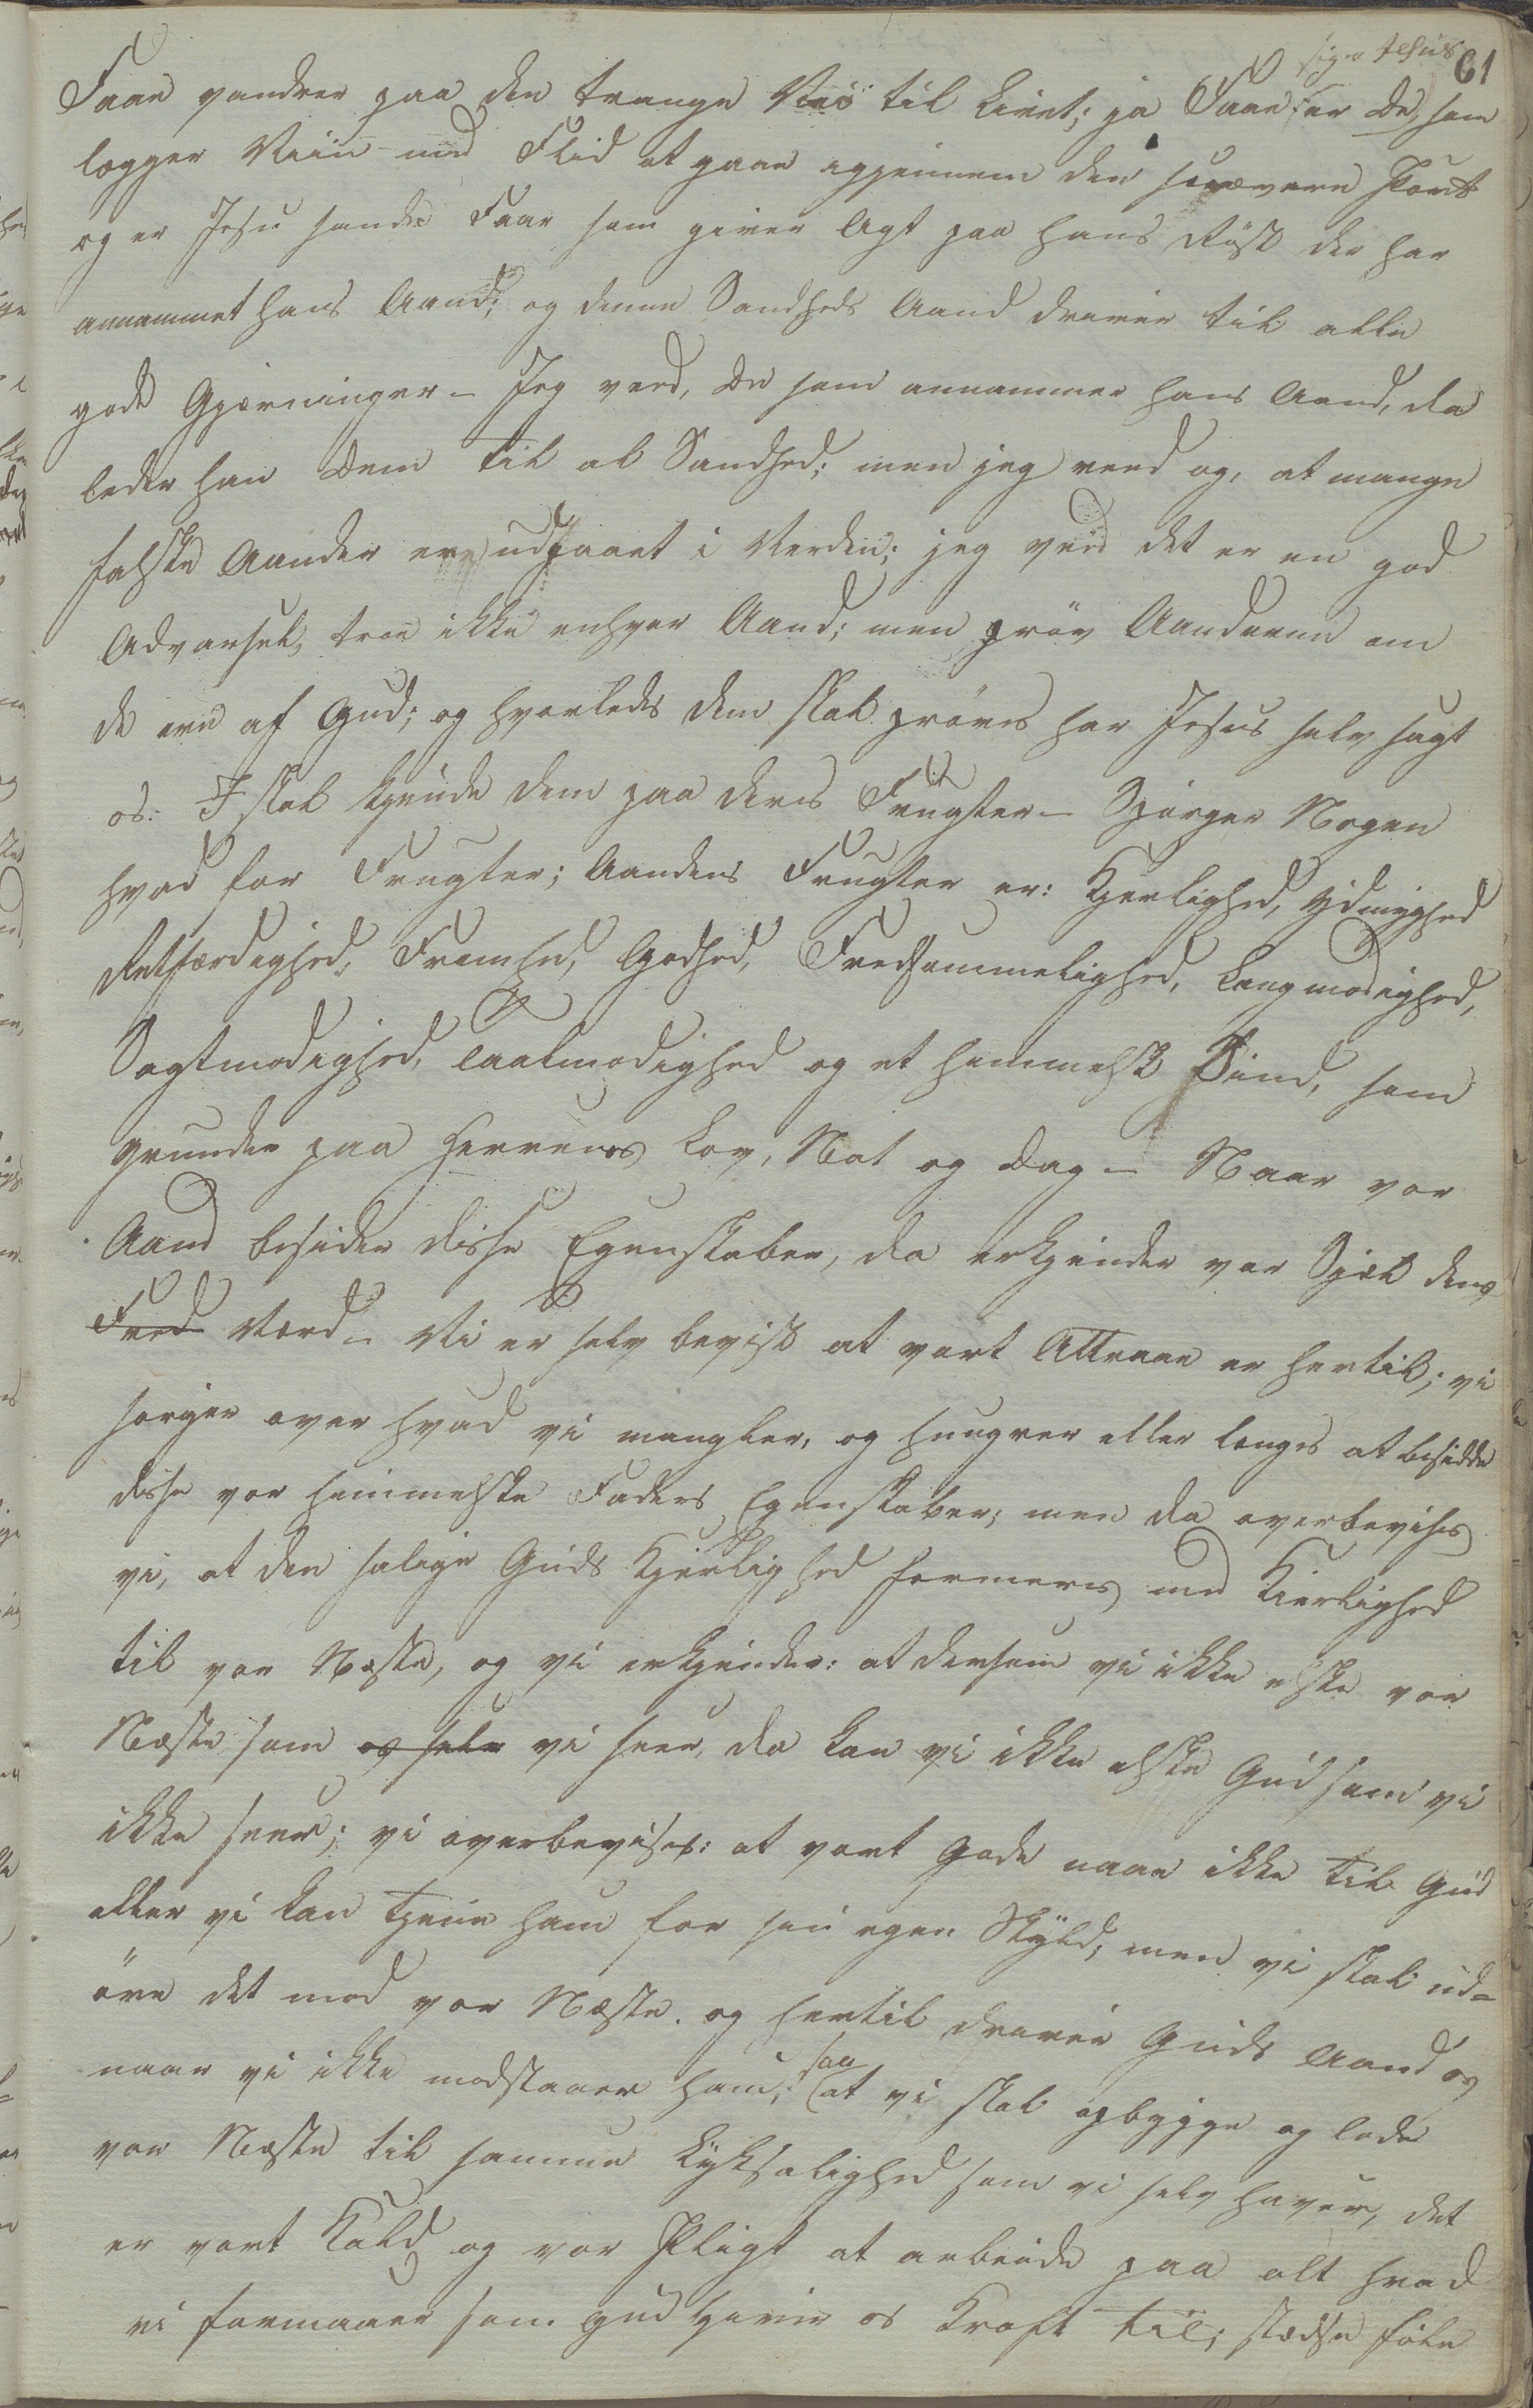 siger Jesus 61
Faae vandrer paa den trange Vei til Livet; ja Faae er De, som
lægger Viin med Flid at gaae igjennem den snævere Port
og er Jesu sande Faar som giver Agt paa hans Röst der har
annammet hans Aand; og denne Sandheds Aand drever til alle
gode Gjærninger – Jeg veed, De som annammer hans Aand, da
leder han Dem til al Sandhed; men jeg veed og, at mange
falske Aander ere udgaaet i Verden; jeg veed det er en god
Advarsel, troe ikke enhver Aand; men pröv Aanderne om
de ere af Gud; og hvorledes dem skal pröves har Jesus selv sagt
os: I skal kjende dem paa deres Frugter – Spörger Nogen
hvad for Frugter; Aandens Frugter er: Kjerlighed, Ydmyghed
Retfærdighed, Fromhed, Godhed, Fredsommelighed, Langmodighed,
Sagtmodighed, Taalmodighed og et himmelsk Sind, som
grunder paa Herrens Lov, Nat og Dag – Naar vor
Aand besidder disse Egenskaber, da erkjender vor Sjæl dens
Fred Værd – Vi er selv bevist at vort Attraae er hertil; vi
sörger over hvad vi mangler, og hungrer eller længes at besidde
disse vor himmelske Faders Egenskaber; men da overbevises
vi, at den salige Guds Kjerlighed formeres med Kierlighed
til vor Næste, og vi erkjender: at dersom vi ikke elske vor
Næste som og selv vi seer, da kan vi ikke elske Gud som vi
ikke seer; vi overbevises: at vort Gode naae ikke til Gud
eller vi kan tjene ham for sin egen Skyld; men vi skal ud=
öve det mod vor Næste. og hertil drever Guds Aand os
naar vi ikke modstaaer ham; saa at vi skal opbygge og lede
vor Næste til samme Lyksalighed som vi selv haver, det
er vort Kald og vor Pligt at arbeide paa alt hvad
vi formaaer som Gud giver os Kraft til; stædse föle